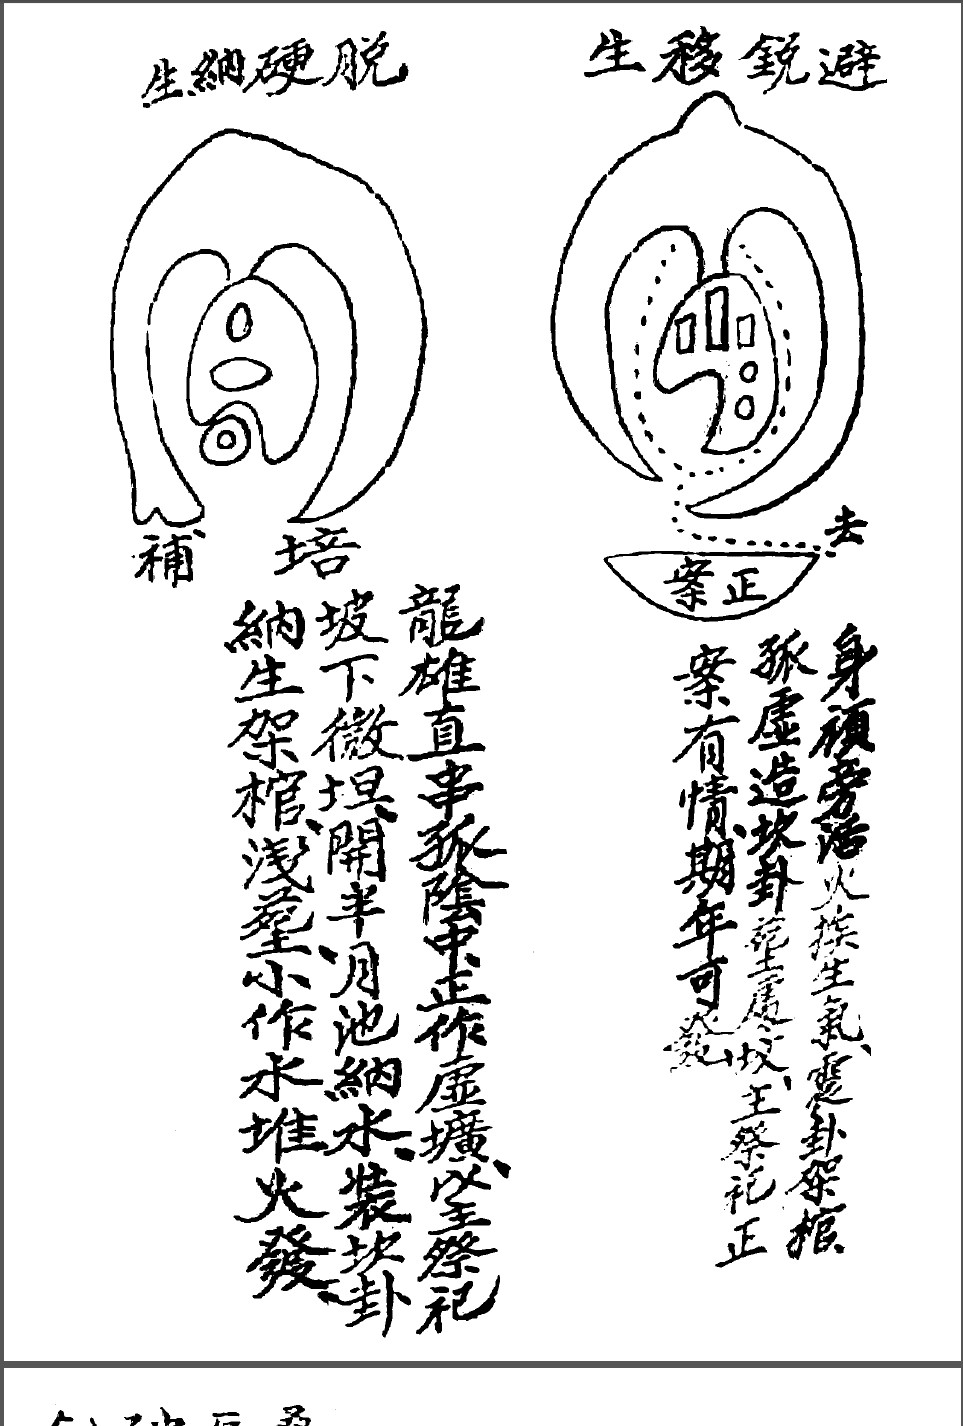 避銳移生
去
正案
身頑旁活火挨生氣、靈卦架棺
孤虛造坎卦塟處坟、主祭祀正
案有情、期年可發
脱硬納生
培補
龍雄直串孤陰中、正作虛壙、以主祭祀
坡下微坦、開半月池納水、裝坎卦
納生架棺、淺塟小作水堆火發、